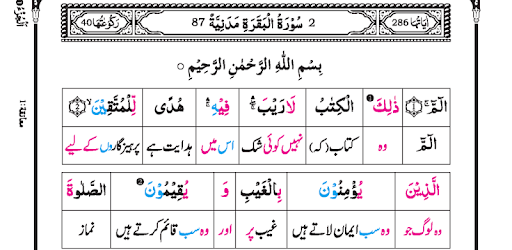 اٰیَاتُهَا 286
2 سُوْرَةُ الْبَقَرَةِ مَدَنِيَّةٌ 87
رُكُوْعَاتُهَا 40
بِسْمِ اللّٰهِ الرَّحْمٰنِ الرَّحِيْمِ ○
الٓمّٓ ۚ ﴿1﴾ ذٰلِكَ الْكِتٰبُ لَا رَيْبَ ۛ فِيْهِ ۛ هُدًى لِّلْمُتَّقِيْنَ ۙ ﴿2﴾
الٓمّٓ وہ کتاب (کہ) نہیں کوئی شک اس میں ہدایت ہے پرہیزگاروں کے لیے
الَّذِيْنَ يُؤْمِنُوْنَ بِالْغَيْبِ وَ يُقِيْمُوْنَ الصَّلٰوةَ
وہ لوگ جو وہ سب ایمان لاتے ہیں غیب پر اور وہ سب قائم کرتے ہیں نماز